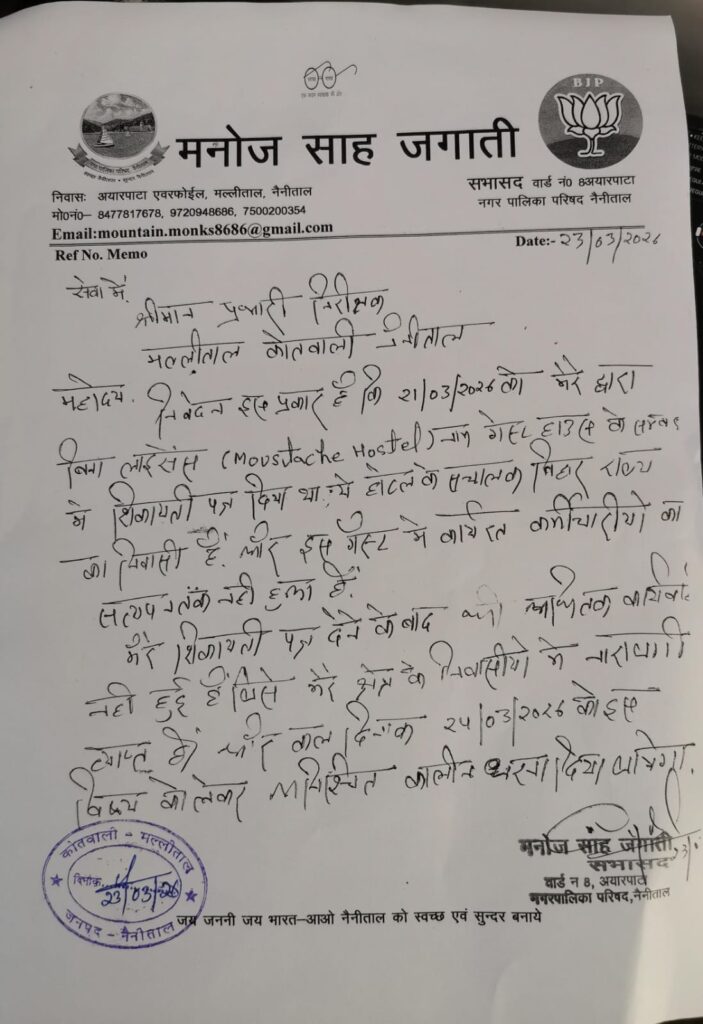 BJP
मनोज साह जगाती
निवासः अयारपाटा एवरफोईल, मल्लीताल, नैनीताल
मो०नं०– 8477817678, 9720948686, 7500200354
Email:mountain.monks8686@gmail.com
सभासद वार्ड नं0 8अयारपाटा
नगर पालिका परिषद नैनीताल
Ref No. Memo
Date:- 23/03/2026
सेवा में,
श्रीमान प्रभारी निरीक्षक
मल्लीताल कोतवाली नैनीताल
महोदय.
निवेदन इस प्रकार हैं कि 21/03/2026 को मेरे द्वारा
बिना लाईसेंस (Moustache Hostel) नाम गेस्ट हाउस के
में शिकायती पत्र दिया था, ये होटल के संचालक बिहार राज्य
का निवासी हैं. और इस गेस्ट में कार्यरत कर्मचारीयो का
सत्यापन तक नही हुआ हैं.
मेरे शिकायती पत्र देने के बाद भी
नही हुई हैं जिसे मेरे क्षेत्र के निवासीयो मे नाराजगी
व्याप्त और कल दिनांक 24/03/2026 को इस
विषय को लेकर अनिश्चित कालीन धरना दिया जायेगा.
मनोज साह जगाती
सभासद
वार्ड न 8, अयारपाटा
नगरपालिका परिषद,नैनीताल
कोतवाली - मल्लीताल
दिनांक
23/03/26
जनपद - नैनीताल
जय जननी जय भारत–आओ नैनीताल को स्वच्छ एवं सुन्दर बनाये